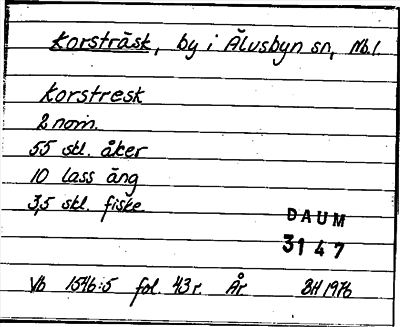 Korsträsk, by i Älvsbyn sn, Nb.l.
Korstresk
2 nom.
55 skl. åker
10 lass äng
3,5 skl. fiske
DAUM
3147
Vb 1546:5 fol. 43 r. År BH 1976